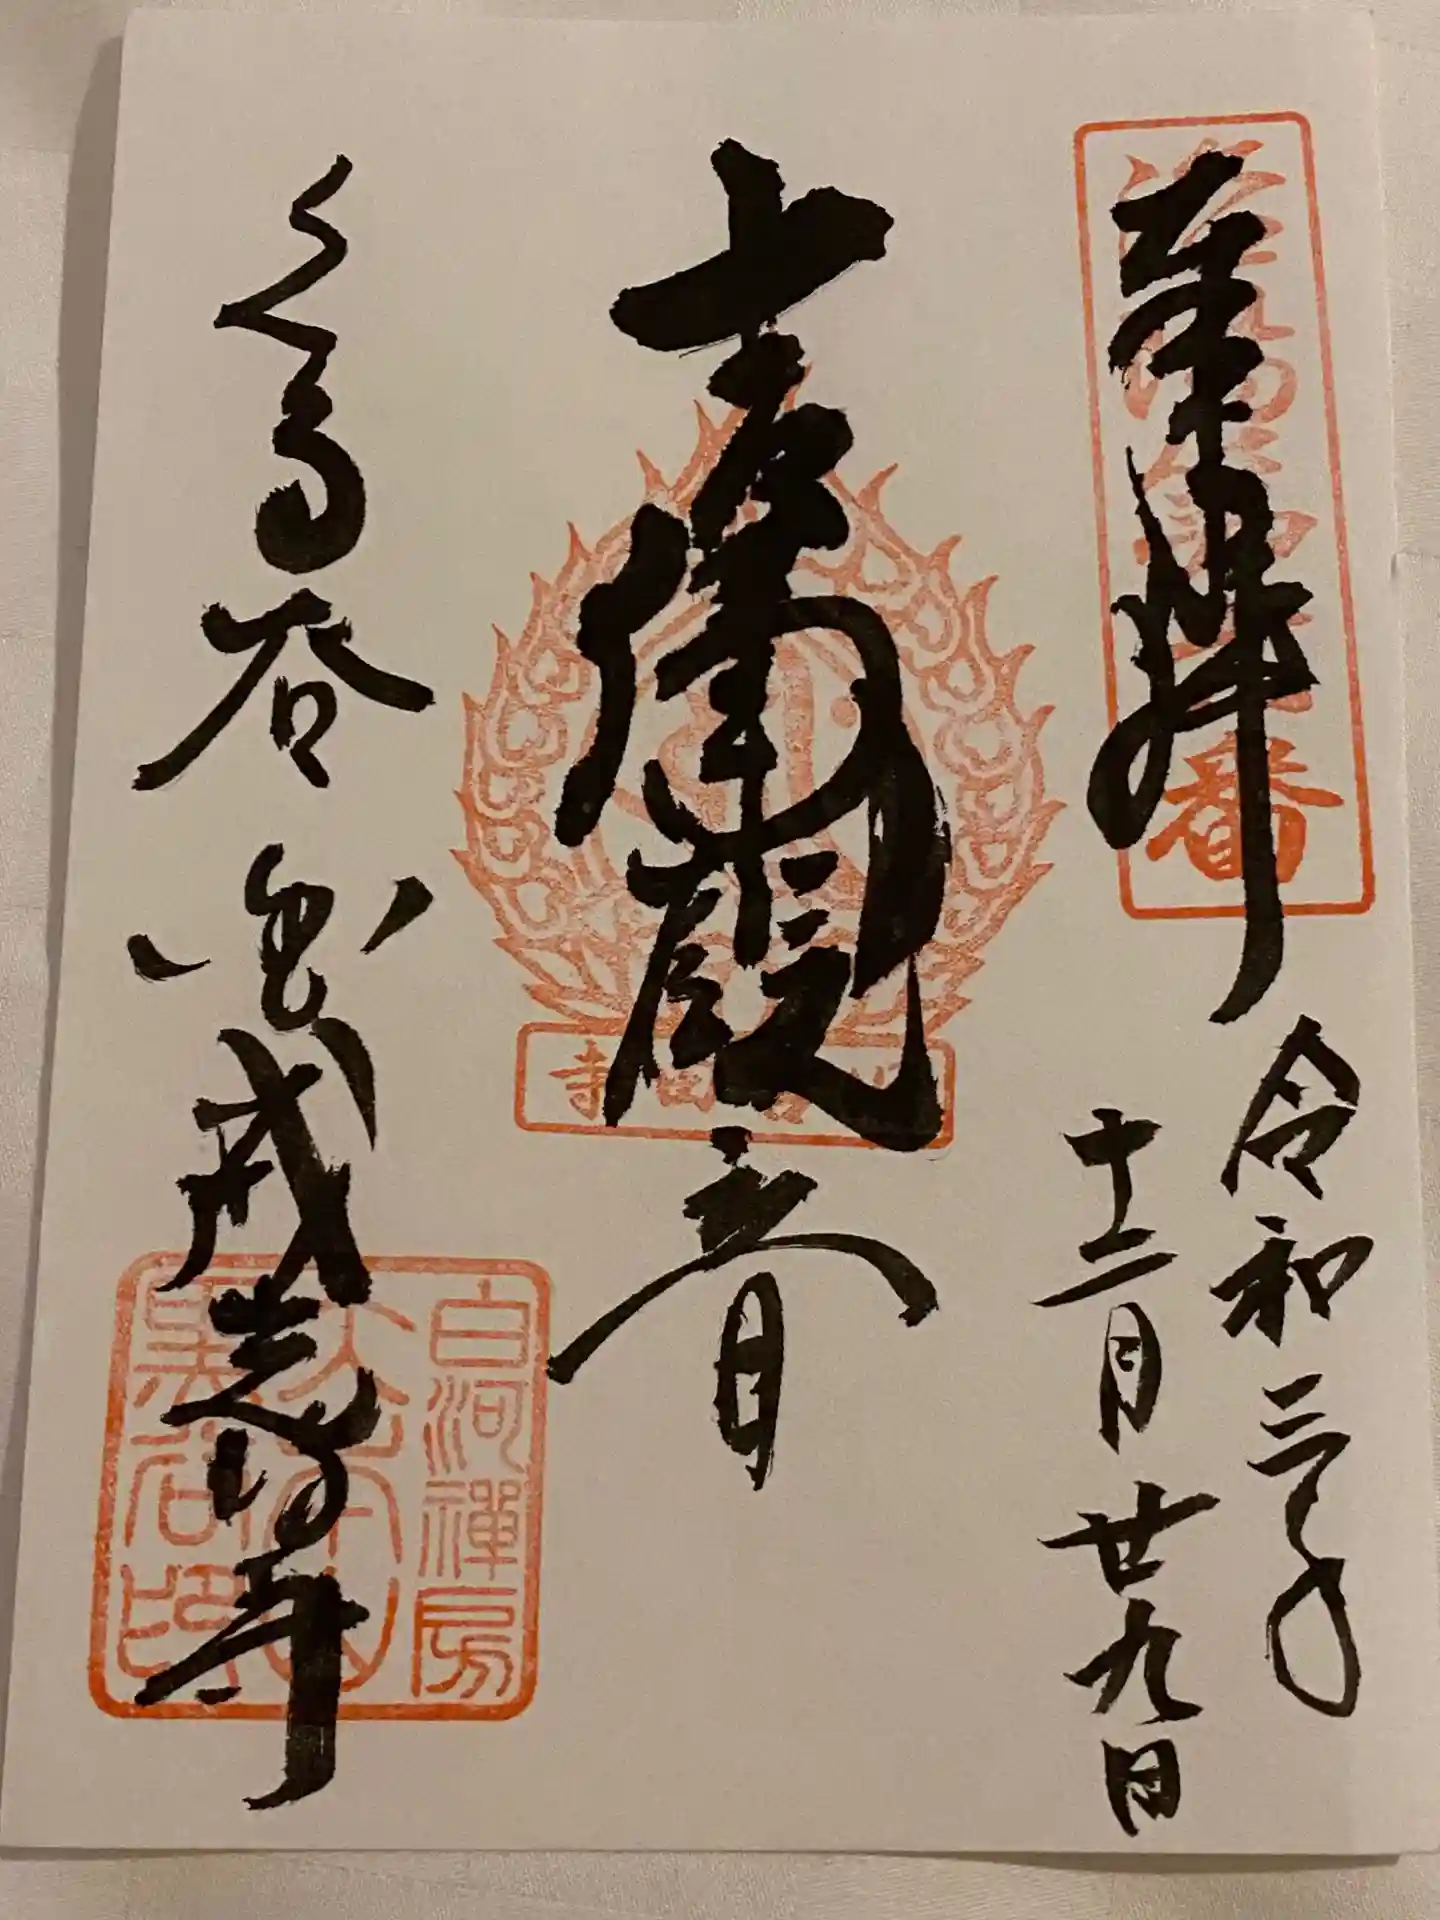 奉拝
令和三年
十二月廿九日
吉備観音
くろ谷
金戒光明寺
白河禅房